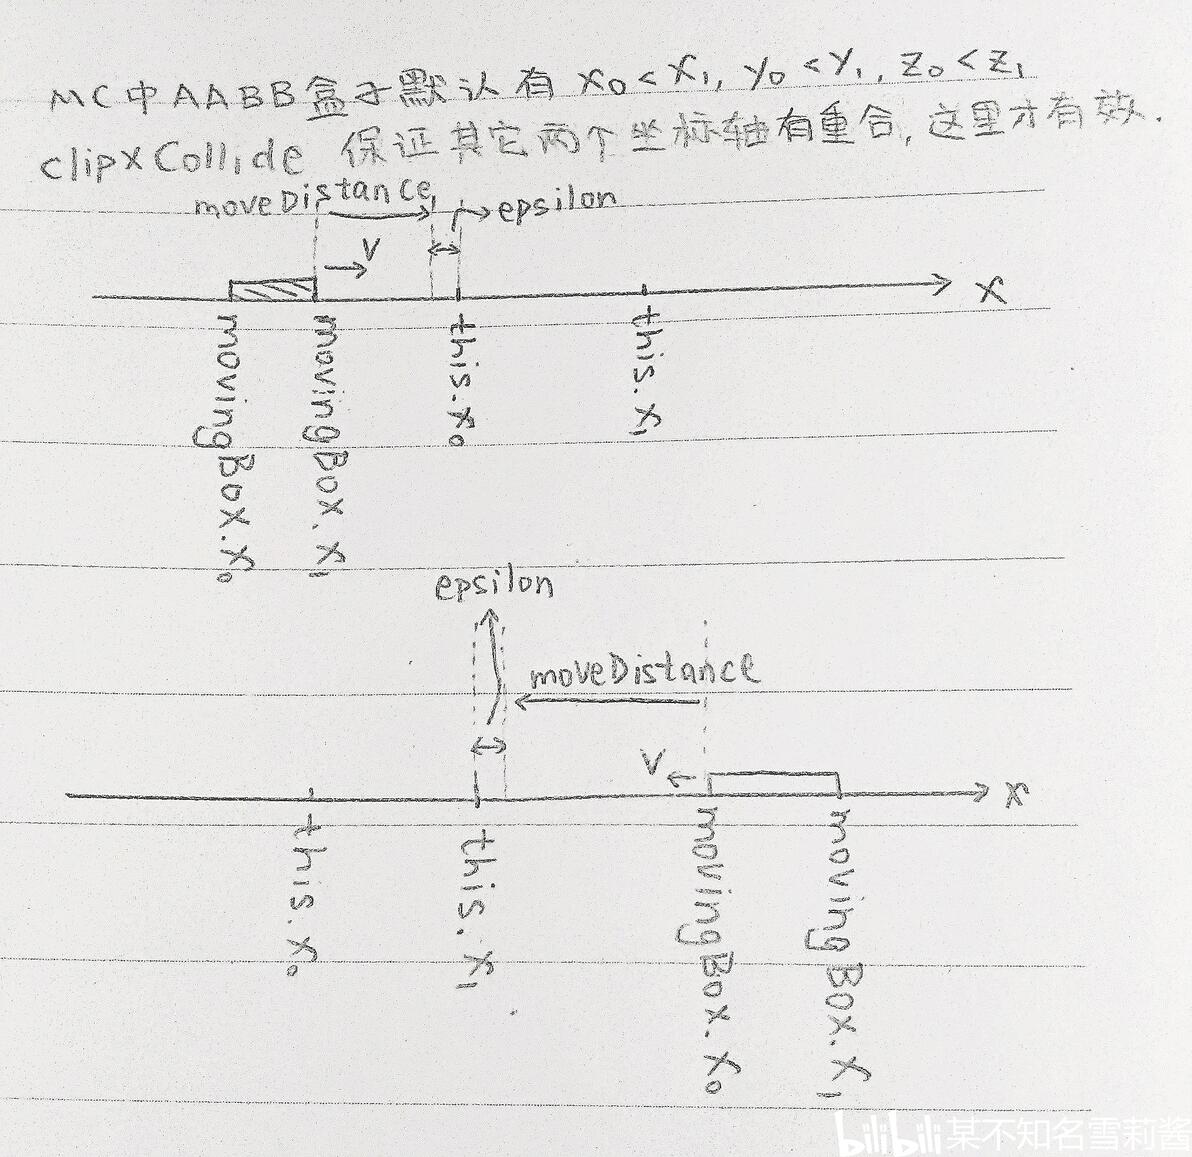 MC中AABB盒子默认有 x₀<x₁, y₀<y₁, z₀<z₁
clipXCollide 保证其它两个坐标轴有重合,这里才有效.
moveDistance
epsilon
V
X
movingBox.x₀
movingBox.x₁
this.x₀
this.x₁
epsilon
moveDistance
V
X
this.x₀
this.x₁
movingBox.x₀
movingBox.x₁
bilibili 某不知名雪莉酱